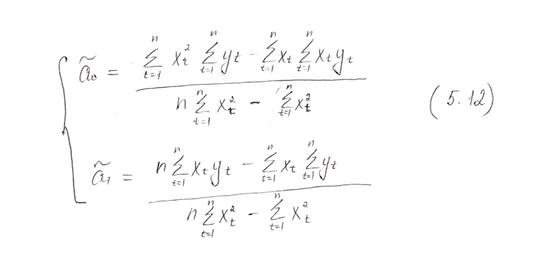 ã₀ = (∑ₜ₌₁ⁿ xₜ² ∑ₜ₌₁ⁿ yₜ − ∑ₜ₌₁ⁿ xₜ ∑ₜ₌₁ⁿ xₜ yₜ) / (n ∑ₜ₌₁ⁿ xₜ² − ∑ₜ₌₁ⁿ xₜ²) (5.12)
ã₁ = (n ∑ₜ₌₁ⁿ xₜ yₜ − ∑ₜ₌₁ⁿ xₜ ∑ₜ₌₁ⁿ yₜ) / (n ∑ₜ₌₁ⁿ xₜ² − ∑ₜ₌₁ⁿ xₜ²)